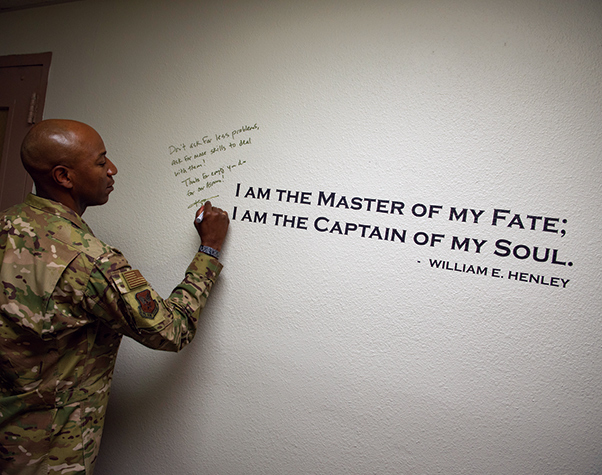 Don't ask for less problems,
ask for more skills to deal
with them!
Thanks for everything you do
for our Airmen!
I AM THE MASTER OF MY FATE;
I AM THE CAPTAIN OF MY SOUL.
- WILLIAM E. HENLEY